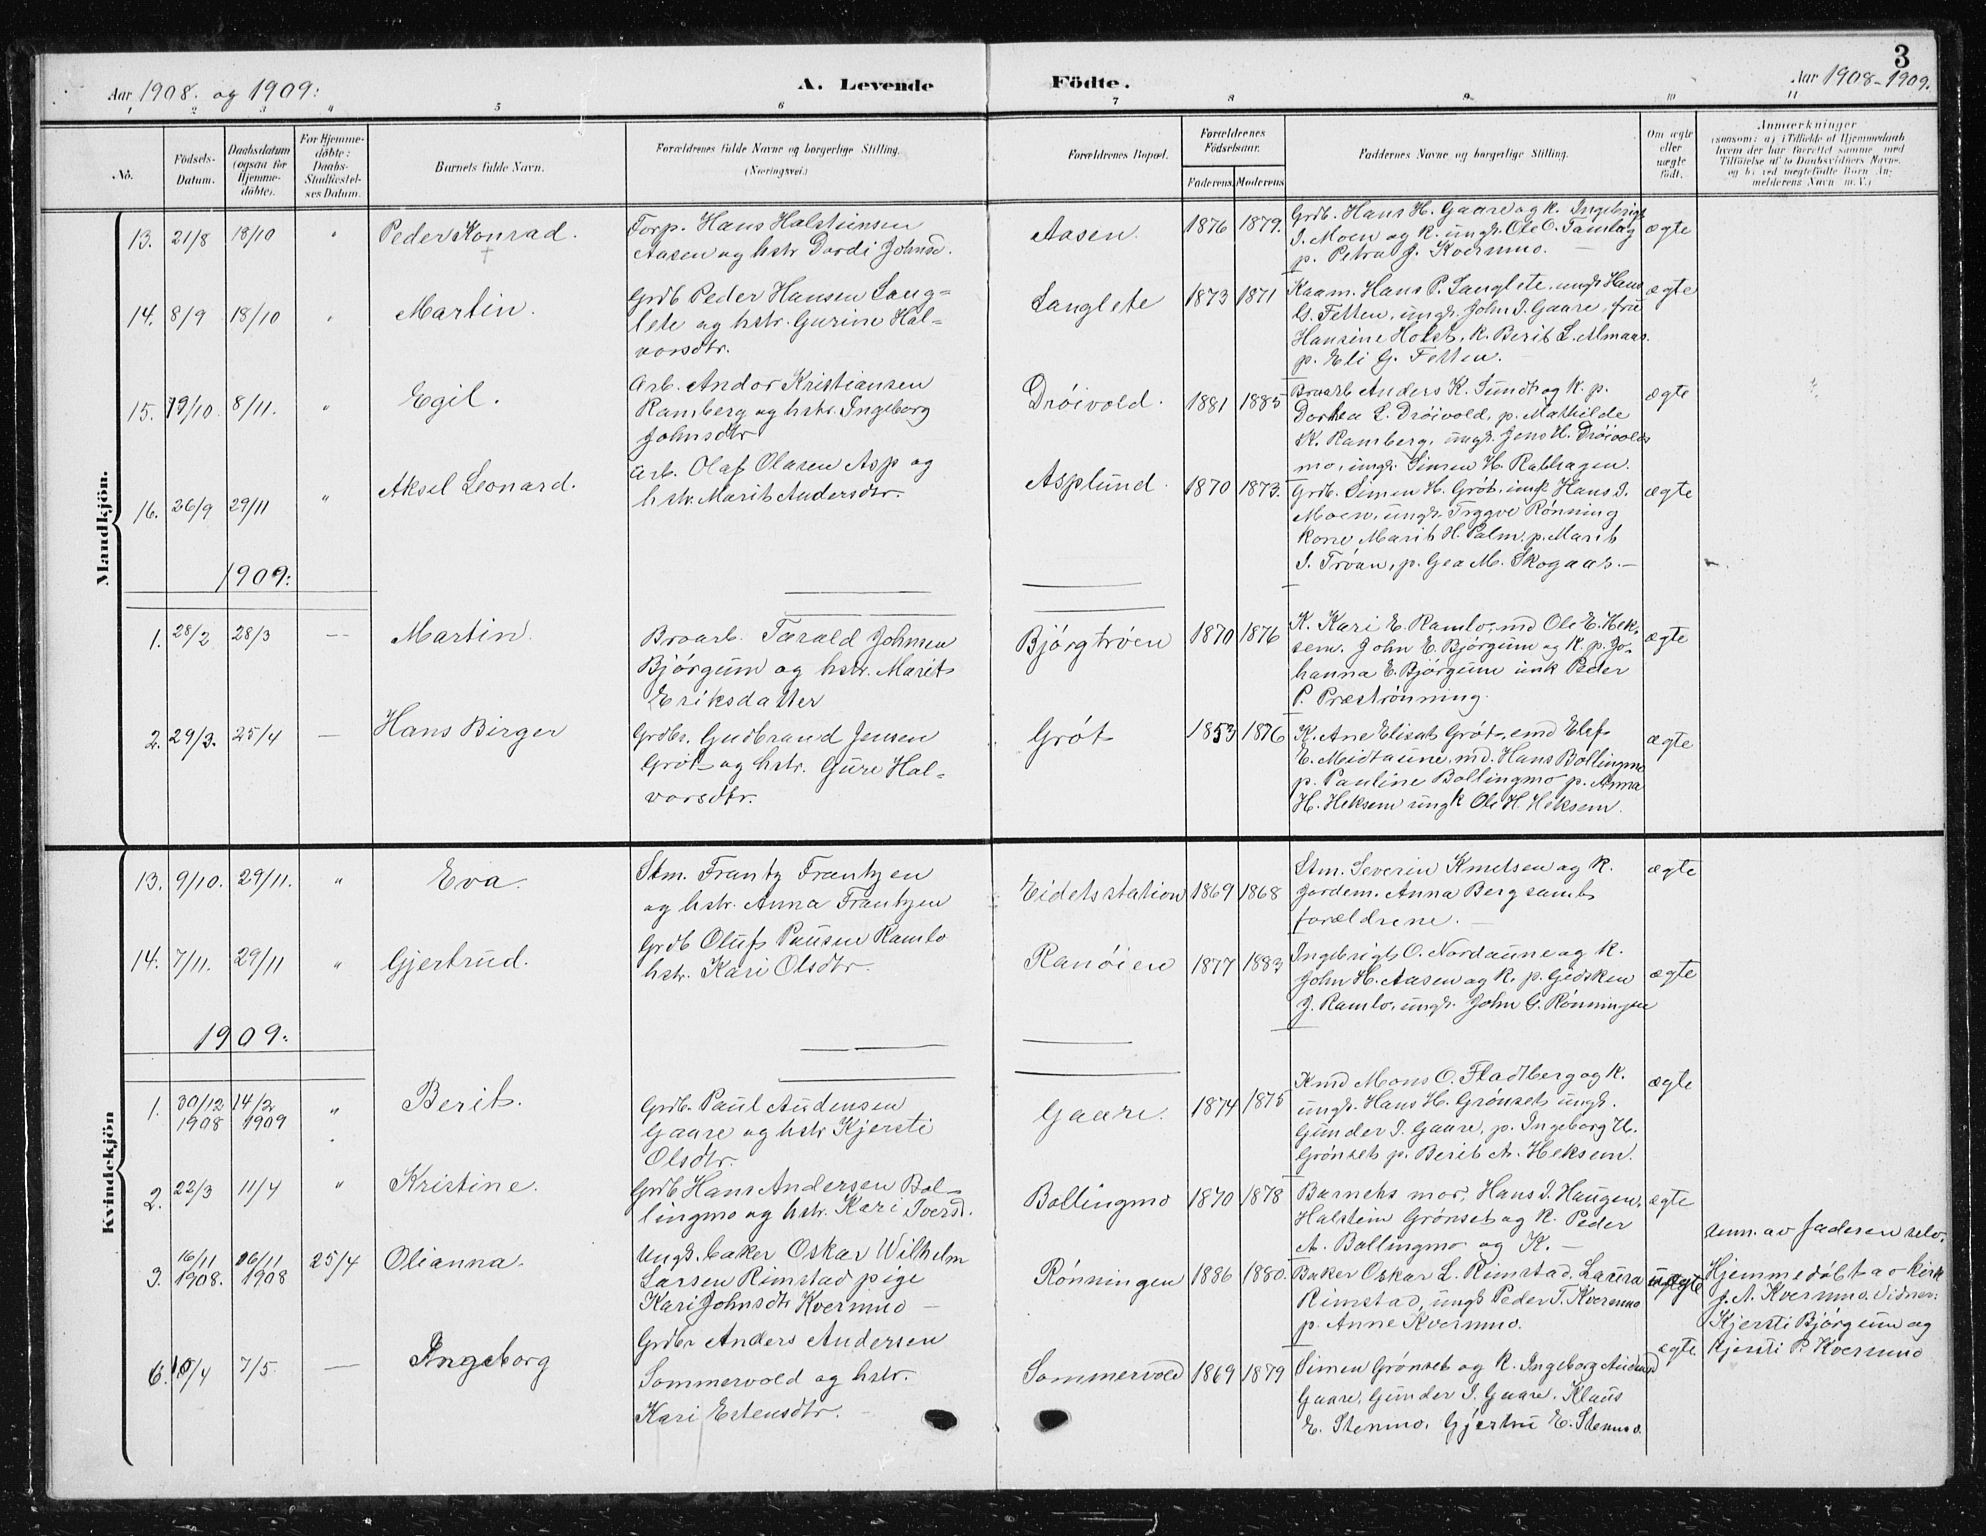 3
Aar 1908. og 1909:
A. Levende
Födte.
Aar 1908-1909.
1 2 3 4 5 6 7 8 9 10 11
No.
Födsels-
Datum.
Daabsdatum
(ogsaa for
Hjemme-
döbte).
For Hjemme-
döbte:
Daabs-
Stadfæstel-
ses Datum.
Barnets fulde Navn.
Forældrenes fulde Navne og borgerlige Stilling.
(Næringsvei.)
Forældrenes Bopæl.
Forældrenes
Födselsaar.
Faderens.
Moderens.
Faddernes Navne og borgerlige Stilling.
Om ægte
eller
uægte
födt.
Anmærkninger
(saasom: a) i Tilfælde af Hjemmedaab
hvem der har forrettet samme, med
Tilföielse af to Daabsvidners Navne,
og b) ved uægtefödte Börn An-
melderens Navn m. V.)
Mandkjön.
13. 21/8 18/10 " Peder Konrad.
Forp. Hans Halsteinsen
Aasen og hstr Dordi Johnsd.
Aasen. 1876 1879.
Grdb. Hans H. Gaare og K. Ingebrigt
J. Moen og K. ungk. Ole O. Tamlag
p. Petra J. Kvernmo. —
ægte
14. 8/9 18/10 " Martin.
Grdb Peder Hansen Lang-
lete og hstr. Gurine Hal-
vorsdtr.
Langlete 1873 1871
Kaarm. Hans P. Langlete, ungk Hans
G. Fetten, ungk. John I. Gaare, fru
Hansine Holst, K. Berit L. Almaas.
p. Eli G. Fetten.
ægte
15. 19/10. 8/11. " Egil.
Arb. Andor Kristiansen
Ramberg og hstr. Ingeborg
Johnsdtr
Dröivold. 1881 1885
Broarb Anders K. Sundt og K. p.
Dorthea L. Dröivold, p. Mathilde
K. Ramberg, ungk. Jens H. Dröivolds
mo, ungk. Simen H. Rabhagen.
ægte
16. 26/9 29/11 " Aksel Leonard.
Arb. Olaf Olasen Asp og
hstr. Marit Andersdtr.
Asplund. 1870 1873.
Grdb. Simen H. Gröt, umk Hans I.
Moen, ungk. Tryggve Rönning
kone Marit H. Palm, p. Marit
I. Tröan, p. Gea M. Skogaas. —
ægte
1909:
1. 28/2 28/3 — Martin.
Broarb. Tarald Johnsen
Björgum og hstr. Marit
Eriksdatter
Björgtröen 1870 1876
K. Kari E. Ramlo, md Ole E. Hek-
sem. John E. Björgum og K. p. Jo-
hanna E. Björgum unk Peder
P. Præströnning.
ægte
2. 29/3. 25/4 — Hans Birger
Grdbr. Gudbrand Jensen
Gröt og hstr. Gure Hal-
vorsdtr.
Gröt 1853 1876
K. Ane Elisab Gröt, emd Elef
E. Midtaune, md. Hans Bollingmo
p. Pauline Bollingmo p. Anna
H. Heksem ungk Ole H. Heksem.
ægte
Kvindekjön
13. 9/10. 29/11. " Eva.
Stm. Frantz Frantzen
og hstr. Anna Frantzen
Eidet station 1869 1868
Stm. Severin Knudsen og K.
Jordem. Anna Berg samt
forældrene. —
ægte
14. 7/11. 29/11 " Gjertrud.
Grdb Oluf Pausen Ramlo
hstr. Kari Olsdtr.
Ranöien 1877 1883
Ingebrigt O. Nordaune og K.
John H. Aasen og K. p. Gidsken
J. Ramlo, ungk. John G. Rönningen
ægte
1909:
1. 30/12 14/2 " Berit.
1908 1909
Grdb. Paul Audensen
Gaare og hstr Kjersti
Olsdtr.
Gaare. 1874 1875
Kmd Mons O. Fladtberg og K.
ungk. Hans H. Grönset, ungk.
Gunder I. Gaare, p. Ingeborg H.
Grönset p. Berit A. Heksem.
ægte
2. 22/3 11/4 " Kristine.
Grdb Hans Andersen Bol-
lingmo og hstr. Kari Iversd.
Bollingmo 1870 1878
Barnets mor, Hans I. Haugen,
Halstein Grönset og K. Peder
A. Bollingmo og K. —
ægte
3. 16/11 26/11 25/4 Olianna.
1908. 1908
Ungk. baker Oskar Wilhelm
Larsen Rimstad pige
Kari Johnsdtr Kvernmo —
Rönningen 1886 1880.
Baker Oskar L. Rimstad, Laura
Rimstad, ungk Peder T. Kvernmo
p. Anne Kvernmo.
uægte
anm. av faderen selv.
Hjemmedöbt av kirk
J. A. Kvernmo. Vidner:
Kjersti Björgum og
Kjersti P. Kvernmo
6. 10/4 7/5. — Ingeborg
Grdbr Anders Andersen
Sommervold og hstr.
Kari Estensdtr.
Sommervold 1869 1879
Simen Grönset og K. Ingeborg Audensd
Gaare, Gunder I. Gaare, Klaus
E. Stenmo, Gjertru E. Stenmo.
ægte